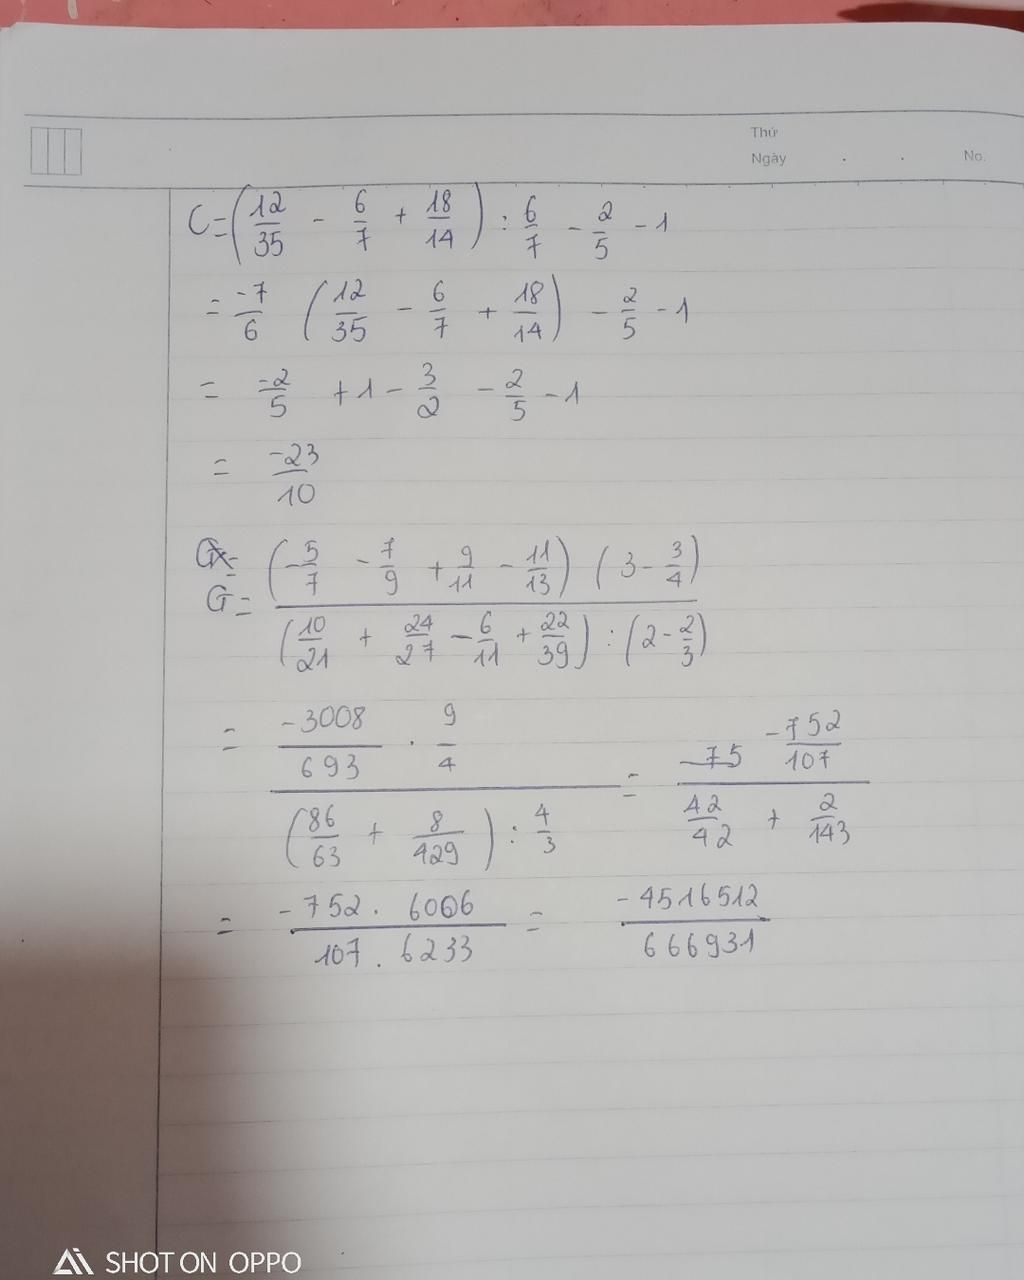 Thứ
Ngày . . No.
C = (12/35 - 6/7 + 18/14) : 6/7 - 2/5 - 1
= -7/6 (12/35 - 6/7 + 18/14) - 2/5 - 1
= -2/5 + 1 - 3/2 - 2/5 - 1
= -23/10
G = (-5/7 - 7/9 + 9/11 - 11/13) (3 - 3/4) / (10/21 + 24/27 - 6/11 + 22/39) : (2 - 2/3)
= -3008/693 . 9/4 / (86/63 + 8/429) : 4/3 = -75 -752/107 / 42/42 + 2/143
= -752 . 6006 / 107 . 6233 = -4516512/666931
SHOT ON OPPO